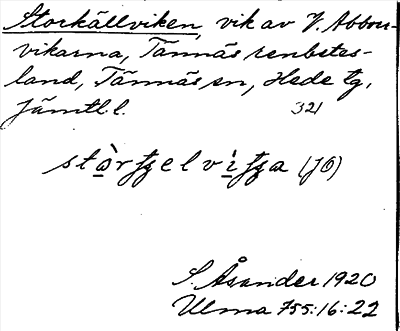 Storkällviken, vik av V. Abborr-
vikarna, Tännäs renbetes-
land, Tännäs sn, Hede tg,
Jämtl. l. 321
(JÖ)
S. Åsander 1920
Ulma 755:16:22